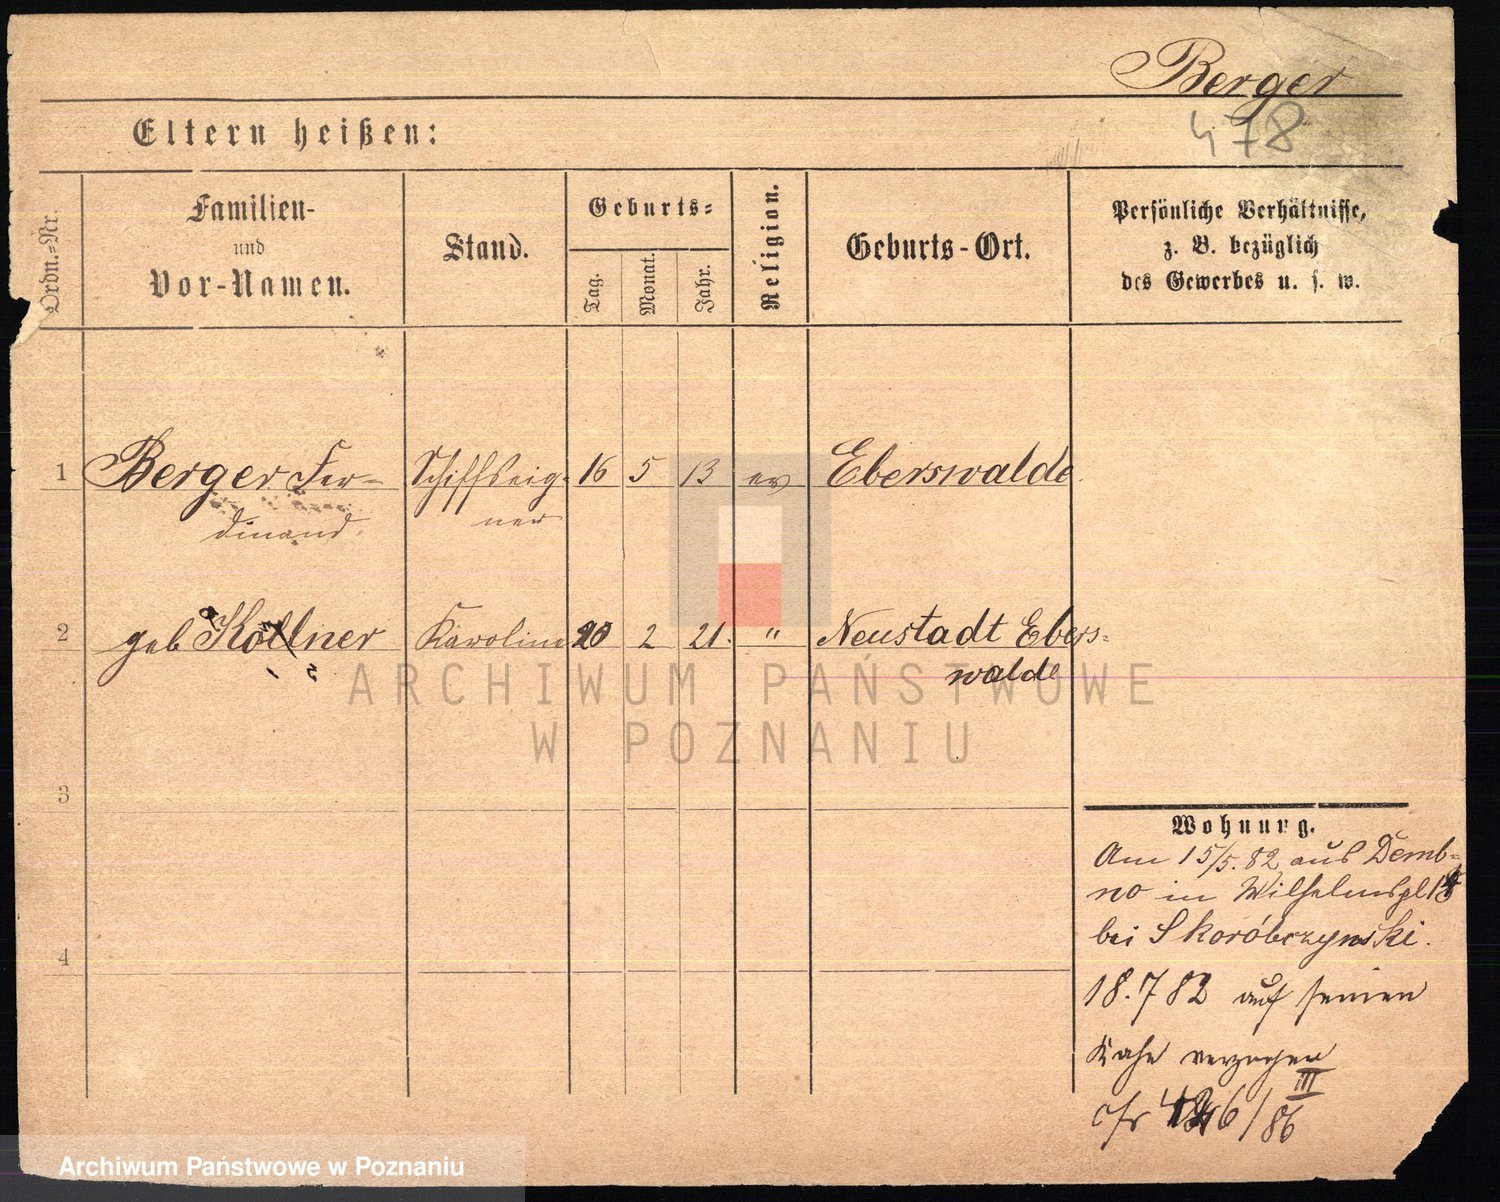 Berger
478
Eltern heißen:
Ordn.=Nr.
Familien-
und
Vor-Namen.
Stand.
Geburts=
Tag.
Monat.
Jahr.
Religion.
Geburts-Ort.
Persönliche Verhältnisse,
z. B. bezüglich
des Gewerbes u. s. w.
1 Berger Fer- Schiffseig- 16 5 13 ev Eberswalde
dinand ner
2 geb Köllner Karoline 20 2 21. " Neustadt Ebers=
walde
ARCHIWUM PAŃSTWOWE
W POZNANIU
3
Wohnung.
Am 15/5. 82 aus Demb-
no in Wilhelmspl
bei Skoróbczynski.
4
18. 7 82 auf seinen
Kahn verzogen
III
cfr /86
Archiwum Państwowe w Poznaniu